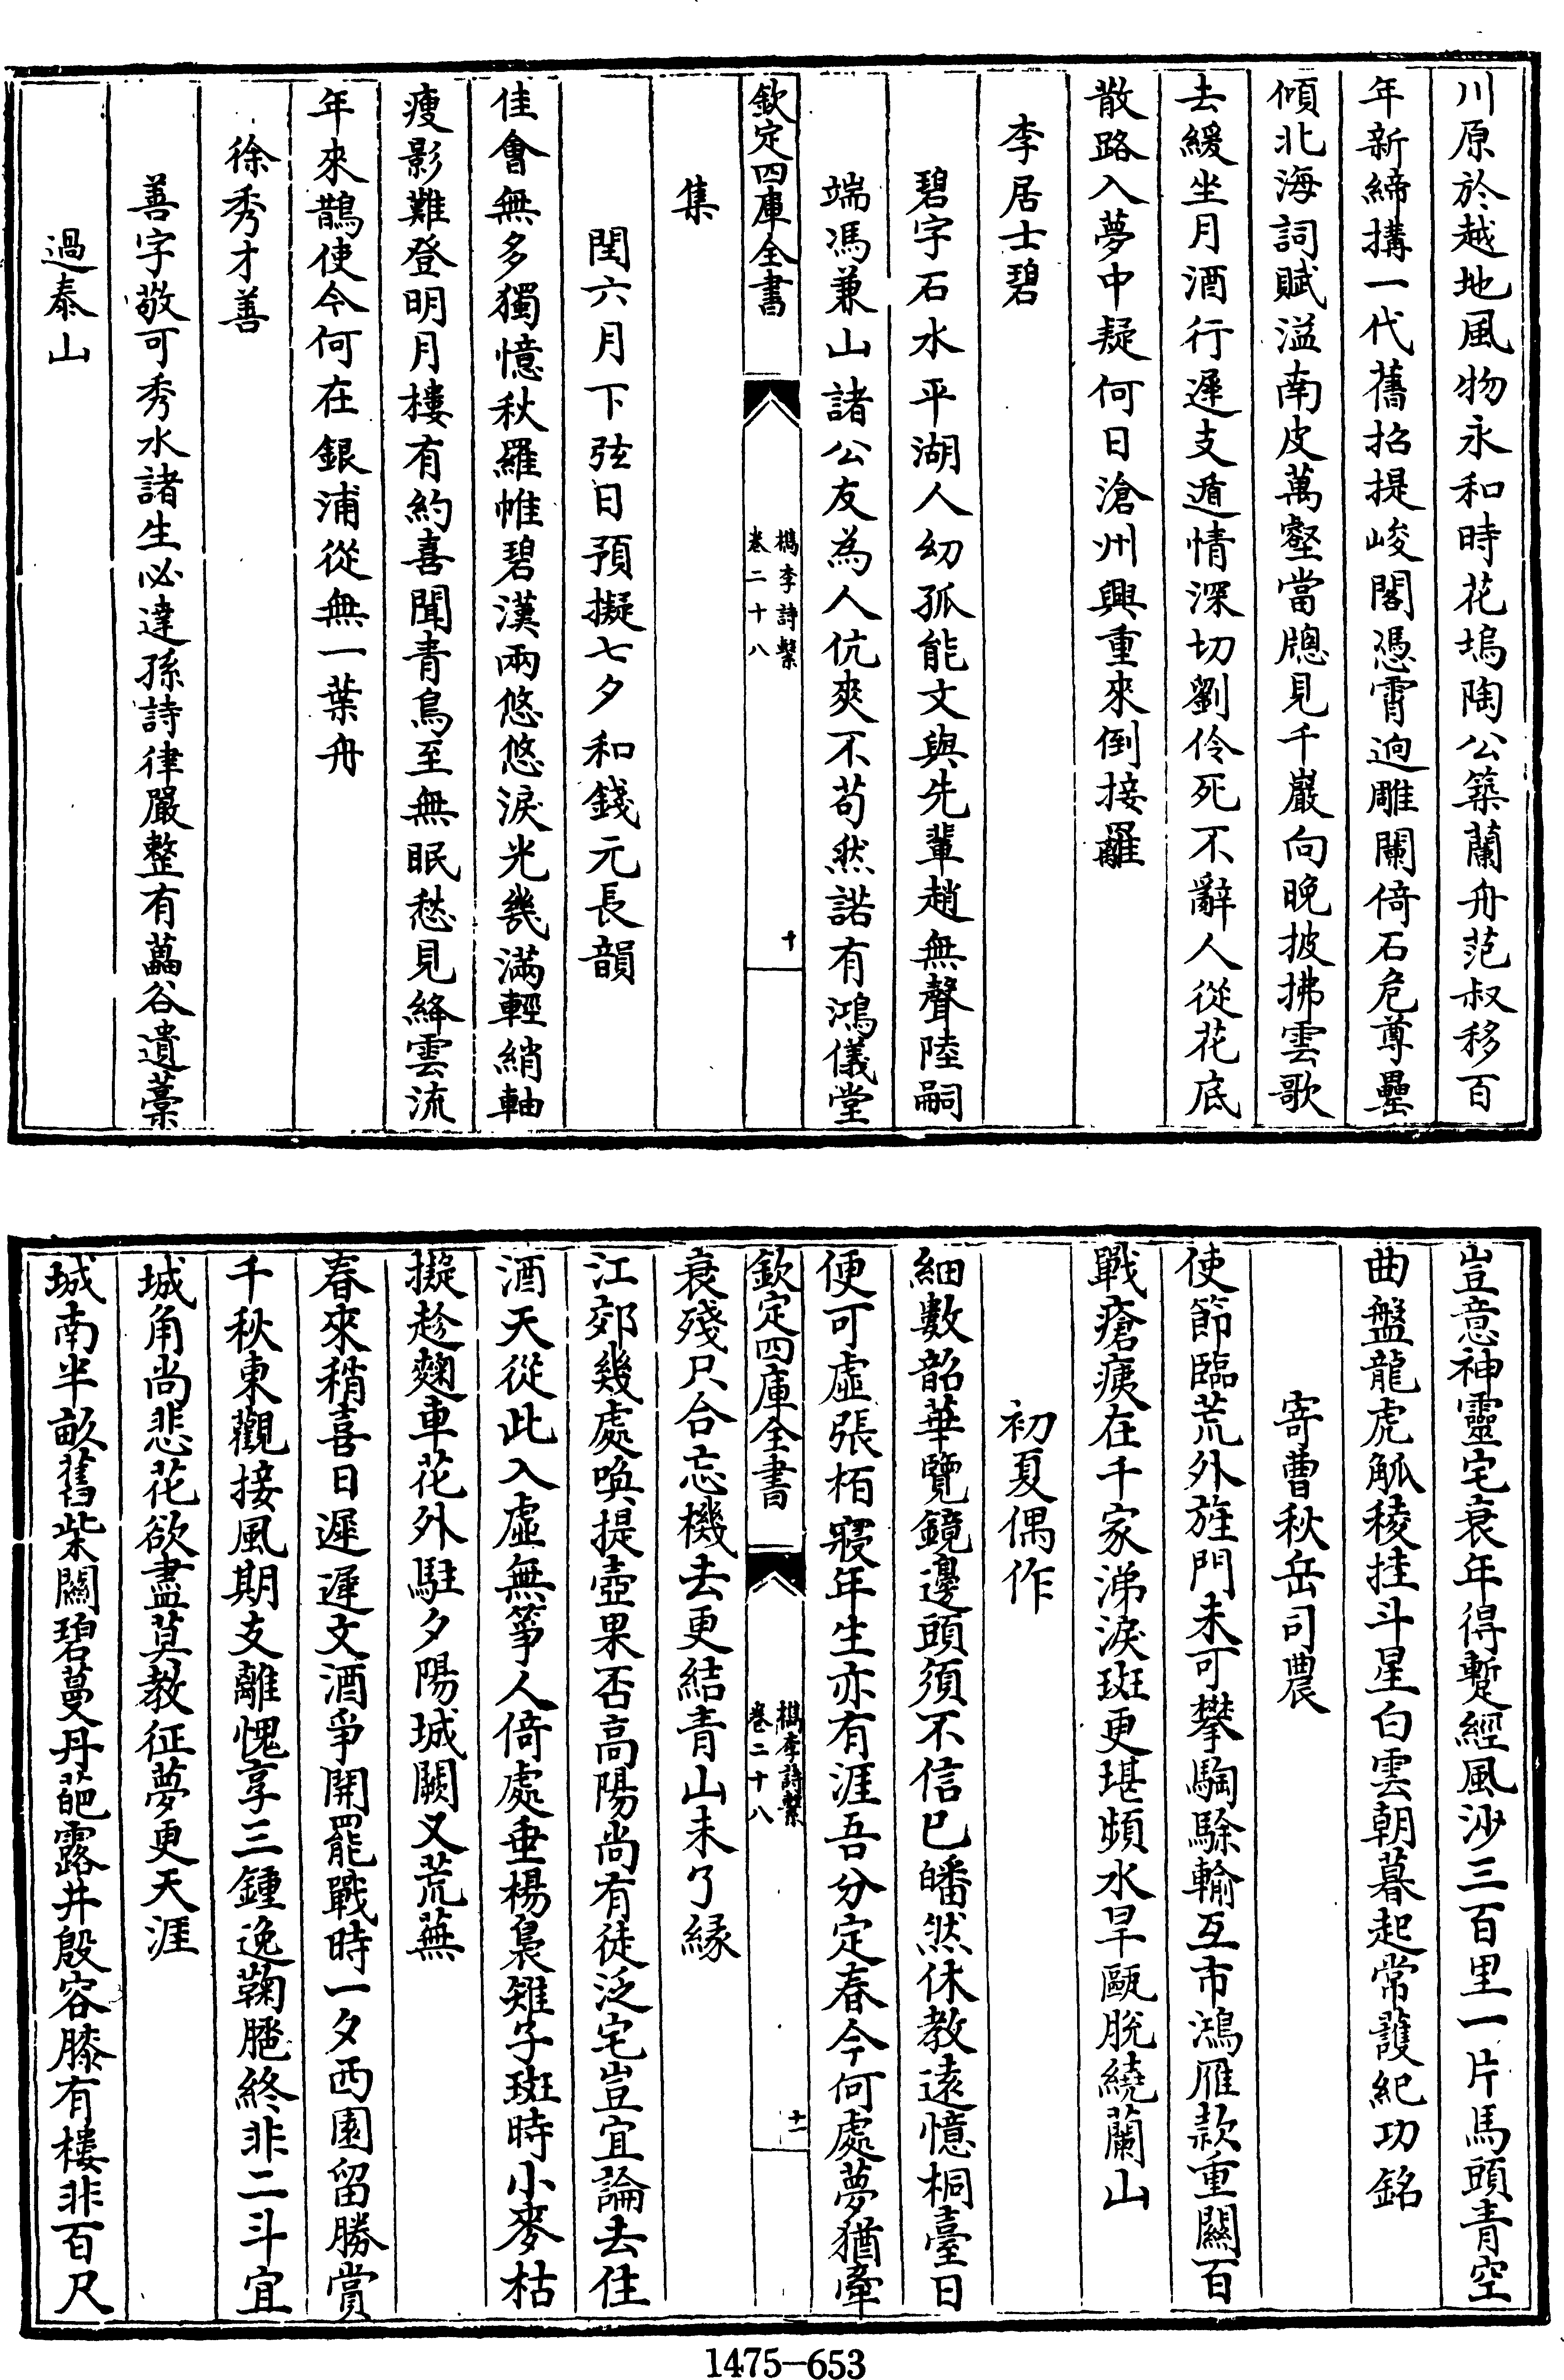 川原於越地風物永和時花塢陶公築蘭舟范叔移百
年新締搆一代舊招提峻閣憑霄逈雕闌倚石危尊罍
傾北海詞賦溢南皮萬壑當牕見千巖向晚披拂雲歌
去緩坐月酒行遲支遁情深切劉伶死不辭人從花底
散路入夢中疑何日滄州興重來倒接䍦
李居士碧
碧字石水平湖人幼孤能文與先輩趙無聲陸嗣
端馮兼山諸公友為人伉爽不苟然諾有鴻儀堂
欽定四庫全書
檇李詩繫
卷二十八
十
集
閏六月下弦日預擬七夕和錢元長韻
佳會無多獨憶秋羅帷碧漢兩悠悠淚光幾滿輕綃軸
瘦影難登明月樓有約喜聞青鳥至無眠愁見絳雲流
年來鵲使今何在銀浦從無一葉舟
徐秀才善
善字敬可秀水諸生必達孫詩律嚴整有藟谷遺藁
過泰山
豈意神靈宅衰年得蹔經風沙三百里一片馬頭青空
曲盤龍虎觚稜挂斗星白雲朝暮起常護紀功銘
寄曹秋岳司農
使節臨荒外旌門未可攀騊駼輸互市鴻雁款重關百
戰瘡痍在千家涕淚斑更堪頻水旱甌脫繞蘭山
初夏偶作
細數韶華覽鏡邊頭須不信已皤然休教遠憶桐臺日
便可虛張栢寢年生亦有涯吾分定春今何處夢猶牽
欽定四庫全書
檇李詩繫
卷二十八
十一
衰殘只合忘機去更結青山未了緣
江郊幾處喚提壺果否高陽尚有徒泛宅豈宜論去住
酒天從此入虛無箏人倚處垂楊裊雉子斑時小麥枯
擬趁麴車花外駐夕陽城闕又荒蕪
春來稍喜日遲遲文酒爭開罷戰時一夕西園留勝賞
千秋東觀接風期支離愧享三鍾逸鞠䐁終非二斗宜
城角尚悲花欲盡莫教征夢更天涯
城南半畝舊柴關碧蔓丹葩露井殷容膝有樓非百尺
1475-653